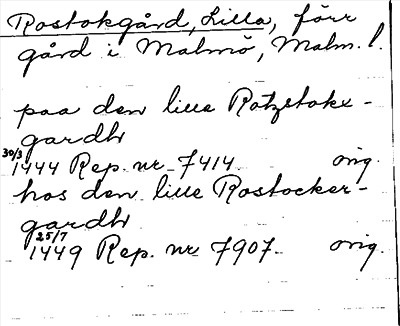 Rostokgård, Lilla, förr
gård i Malmö, Malm. l.
paa den lille Rotzstokx-
gardh
30/3 1444 Rep. nr 7414 orig.
hos den lille Rostocker-
gardh
25/7 1449 Rep. nr 7907 orig.